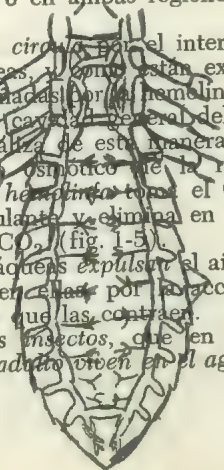 o en ambas regione
circula por el inter
eas, y como están ex
nadas por la hemolin
(cavidad general del
aliza de este manera
osmótico que la r
hemolinfa tome el
ulante y elimina en
CO₂ (fig. 1-5).
áqueas expulsan el ai
en ellas por la acc
que las contraen.
s insectos, que en
adulto viven en el ag